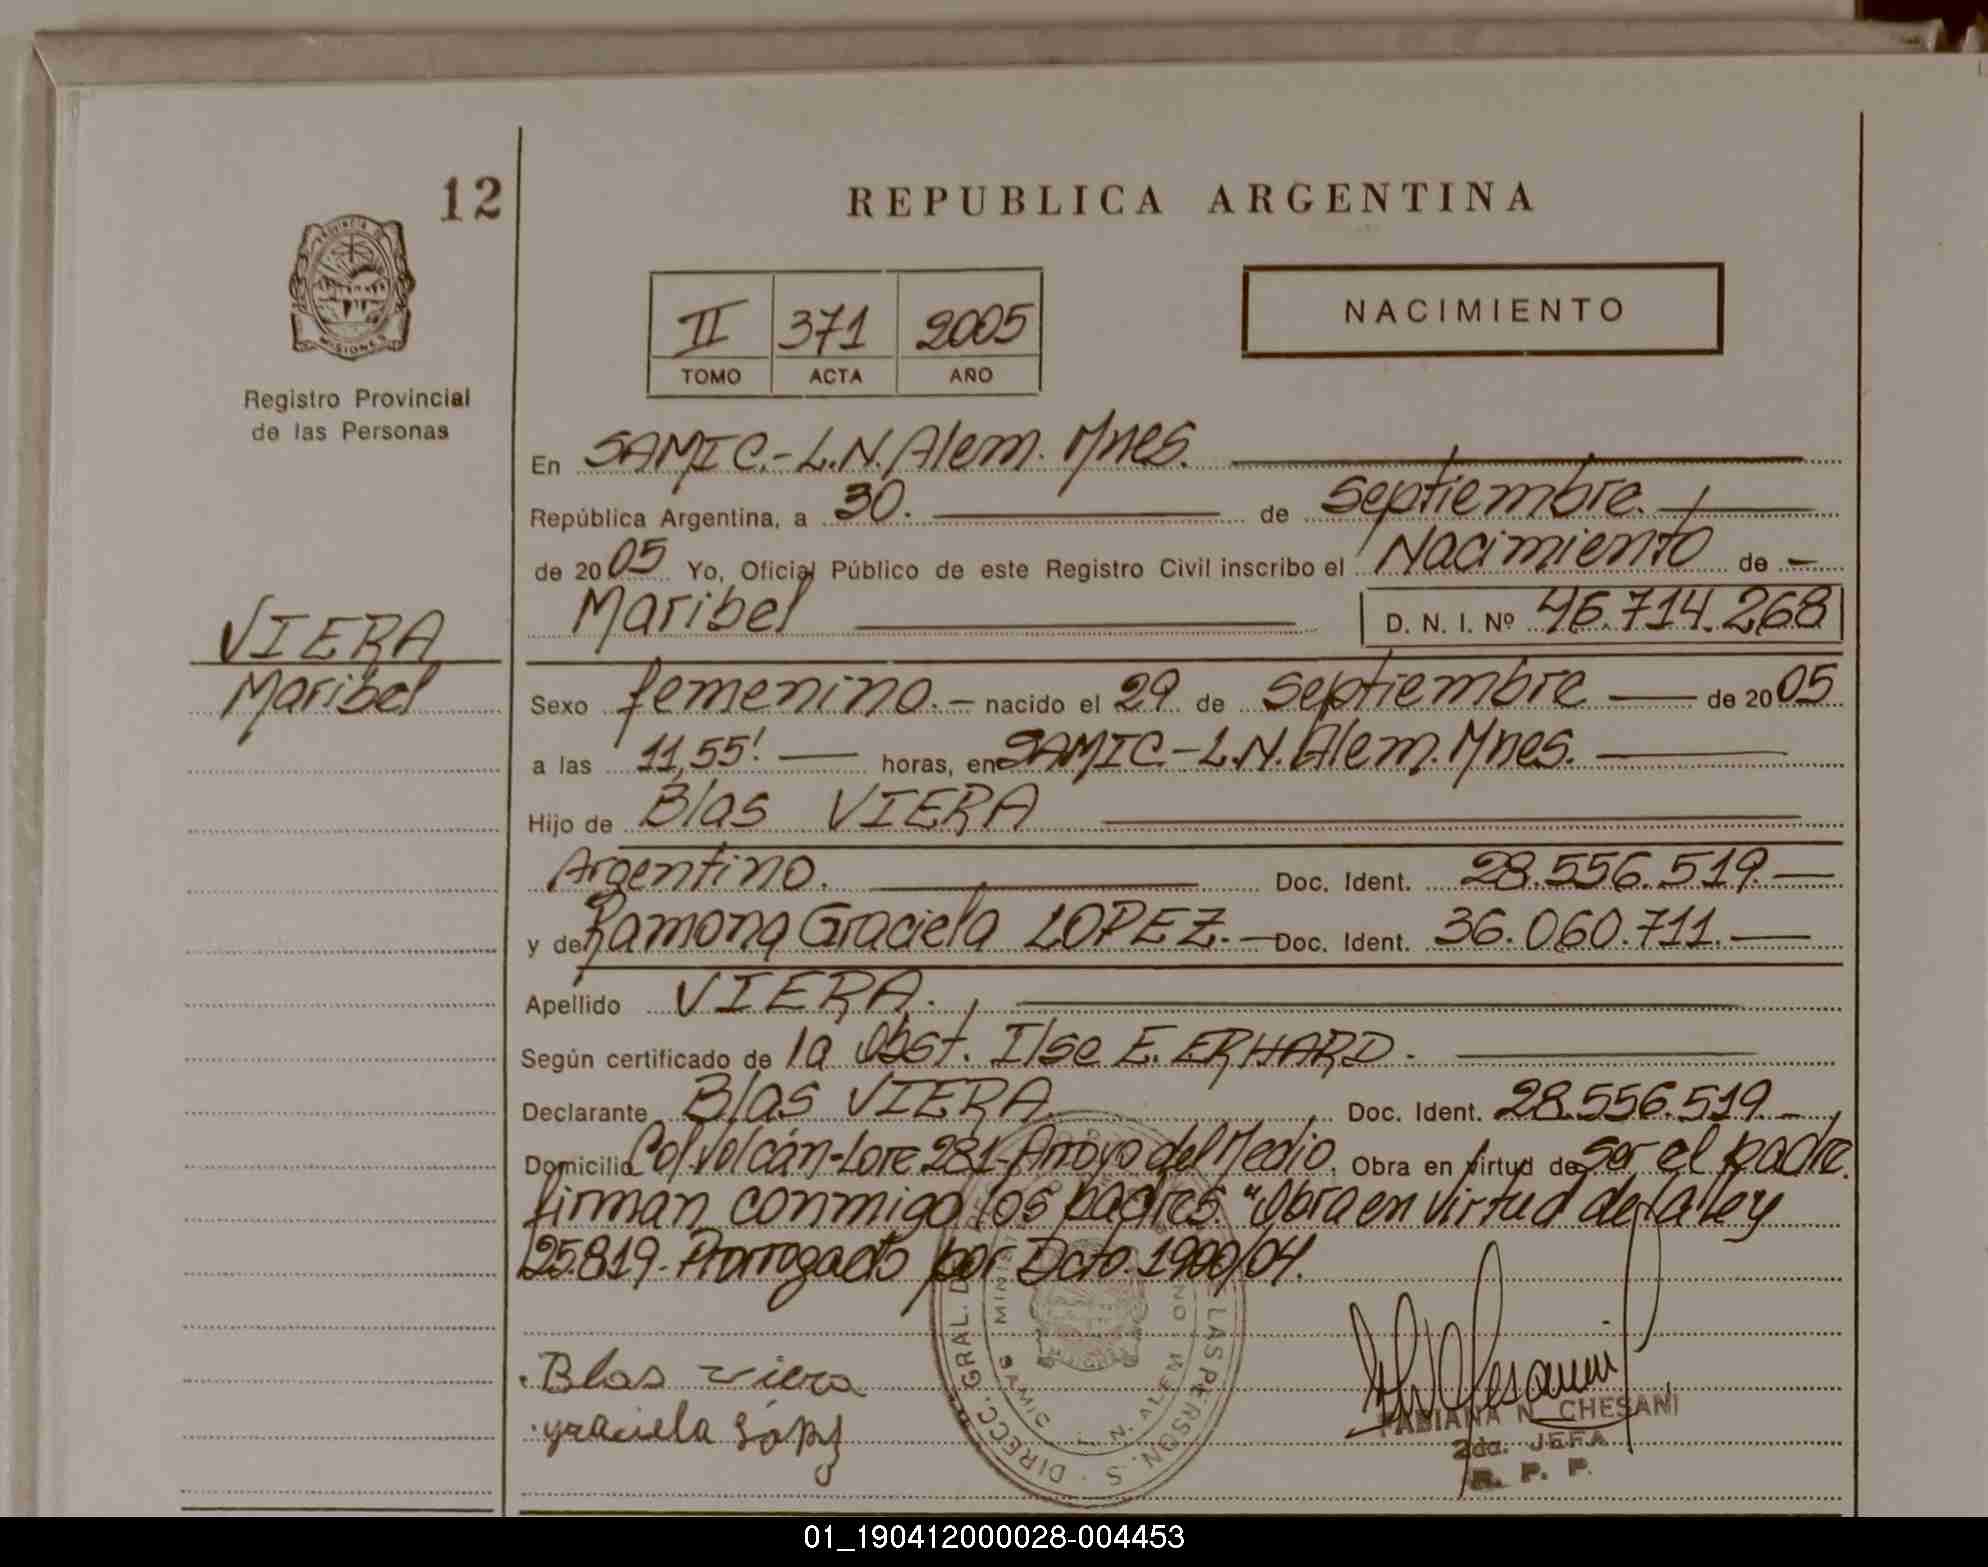 12
REPUBLICA ARGENTINA
PROVINCIA DE
MISIONES
Registro Provincial
de las Personas
II 371 2005
TOMO ACTA AÑO
NACIMIENTO
En SAMIC.-L.N.Alem. Mnes.
República Argentina, a 30. de septiembre.
de 2005 Yo, Oficial Público de este Registro Civil inscribo el Nacimiento de -
Maribel D. N. I. Nº 46.714.268
VIERA
Maribel
Sexo femenino.- nacido el 29 de septiembre de 2005
a las 11,55' horas, en SAMIC-L.N.Alem.Mnes.
Hijo de Blas VIERA
Argentino. Doc. Ident. 28.556.519.
y de Ramona Graciela LOPEZ.- Doc. Ident. 36.060.711.
Apellido VIERA.
Según certificado de la Obst. Ilse E. ERHARD.
Declarante Blas VIERA Doc. Ident. 28.556.519.-
Domicilio Col.Volcán-Lote 281-Arroyo del Medio. Obra en virtud de ser el padre.
firman conmigo los padres. "Obra en virtud de la ley
25.819. Prorrogado por Dcto. 1900/04.
Blas viera
graciela López
DIRECC. GRAL. DE LAS PERSONAS
SAMIC L. N. ALEM
MISIONES
FABIANA N. CHESANI
2da. JEFA
R. P. P.
01_190412000028-004453